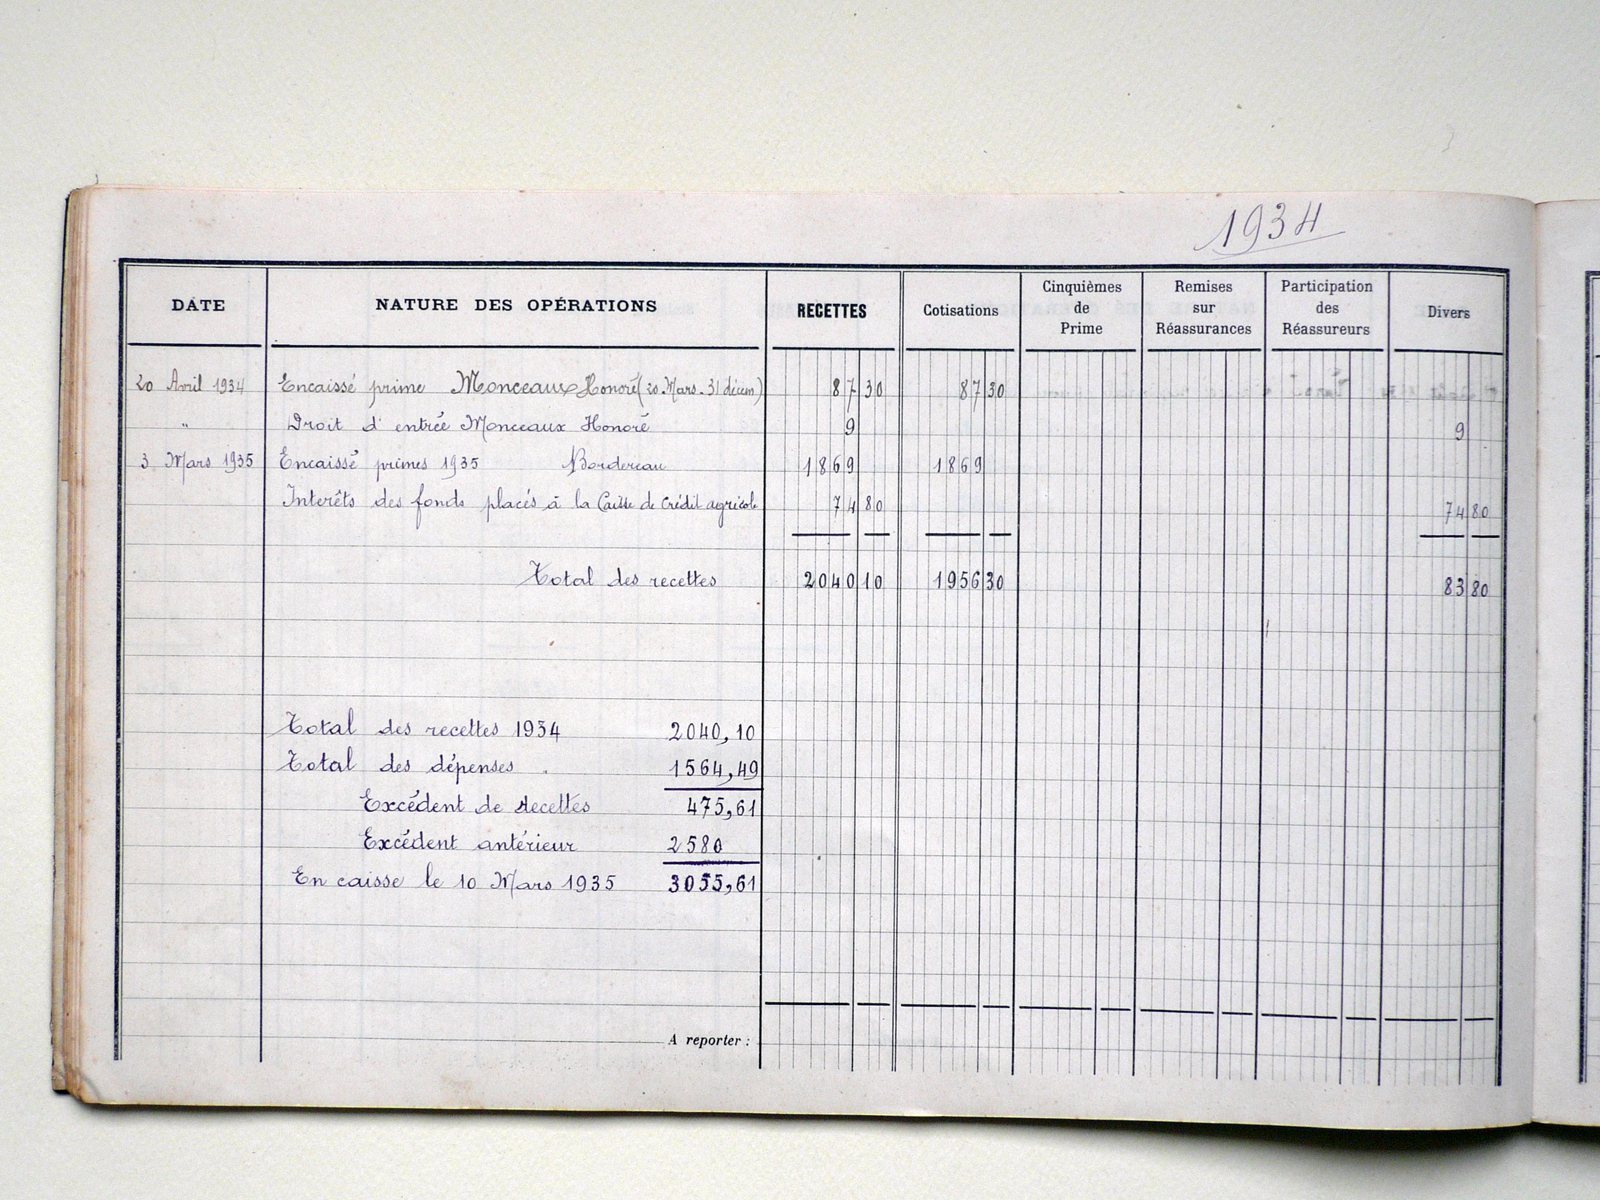 1934
DATE NATURE DES OPÉRATIONS RECETTES Cotisations Cinquièmes de Prime Remises sur Réassurances Participation des Réassureurs Divers
20 Avril 1934 Encaissé prime Monceaux Honoré (20 Mars. 31 décem) 87 30 87 30
" Droit d'entrée Monceaux Honoré 9 9
3 Mars 1935 Encaissé primes 1935 Bordereau 1869 1869
Interêts des fonds placés à la Caisse de Crédit agricole 74 80 74 80
Total des recettes 2040 10 1956 30 83 80
Total des recettes 1934 2040,10
Total des dépenses 1564,49
Excédent de recettes 475,61
Excédent antérieur 2580
En caisse le 10 Mars 1935 3055,61
A reporter :